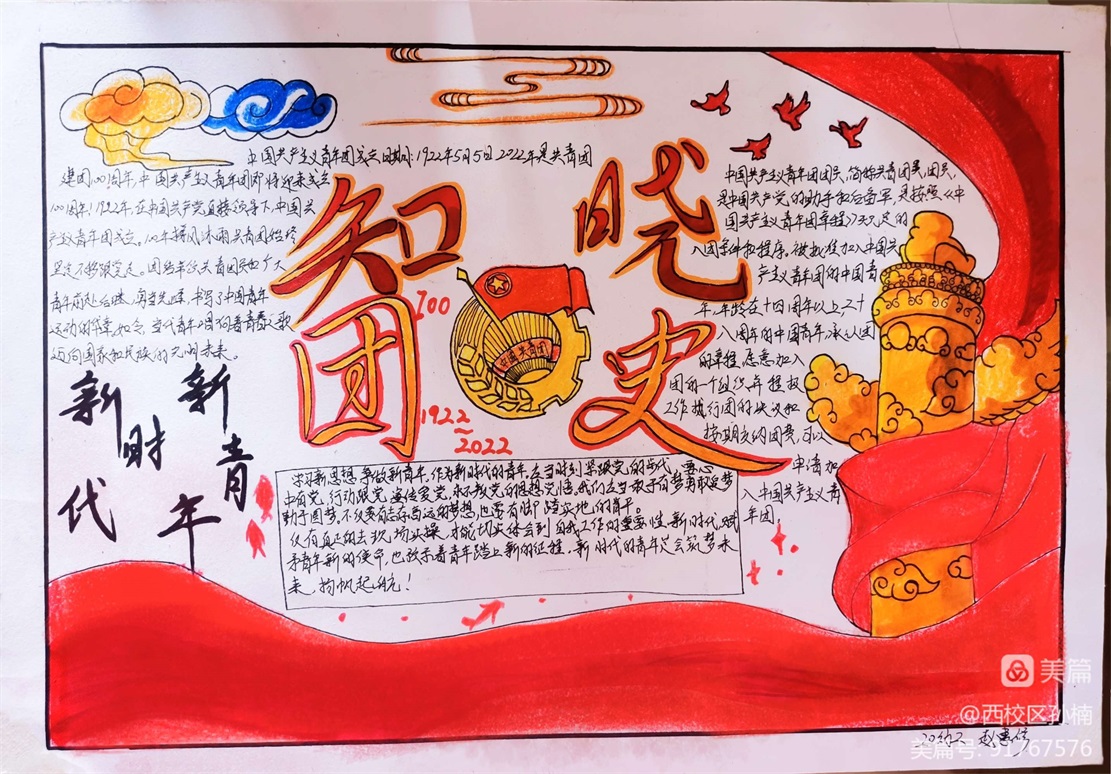 中国共产主义青年团成立日期:1922年5月5日2022年是共青团
建团100周年,中国共产主义青年团即将迎来成立
100周年!1922年,在中国共产党直接领导下,中国共
产主义青年团成立。100年栉风沐雨共青团始终
坚定不移跟党走。团
青年前
运动的华章如今,当代青年
迈向国家和民族的光明未来。
知晓
团史
100
1922~
2022
中国共青团
新时代
新青年
中国共产主义青年团团员,简称共青团员,团员,
是中国共产党的助手和后备军,是按照《中
国共产主义青年团章程》
入团条件和程序,被批准加入中国共
产主义青年团的中国青
年,年龄在十四周年以上,二十
八周年的中国青年,承认团
的章程,愿意加入
团的一个组织
工作执行团的决议和
按期交纳团费,可以
申请加
入中国共产主义青
年团.
学习新思想,争做新青年,作为新时代的青年应当时刻紧跟党的步伐,要心
中有党,行动跟党,
勤于圆梦,不仅要有志存高远的梦想,也要有脚踏实地的肯干。
仅有真正的去现场实操,才能切实体会到自我工作的重要性,新时代赋
予青年新的使命,也预示着青年踏上新的征程,新时代的青年定会筑梦未
来,扬帆起航!
美篇
@西校区孙楠
美篇号:91767576